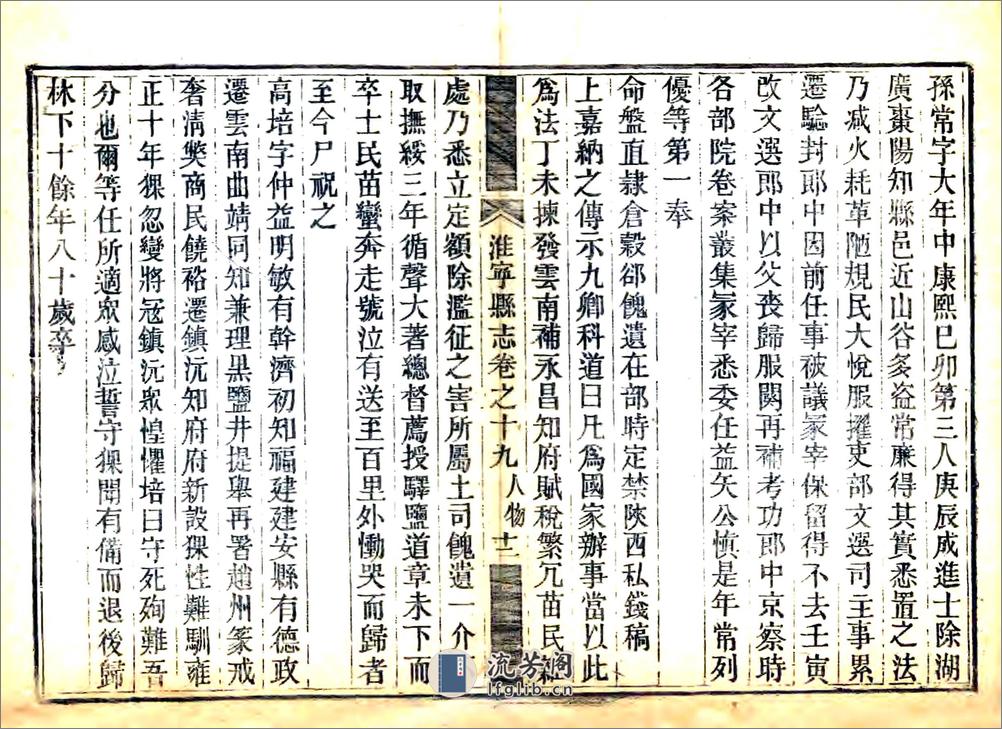 孫常字大年中康熙己卯第三人庚辰成進士除湖
廣棗陽知縣邑近山谷多盜常廉得其實悉置之法
乃减火耗革陋規民大悅服擢吏部文選司主事累
遷驗封郎中因前任事被議冢宰保留得不去壬寅
改文選郎中以父喪歸服闋再補考功郎中京察時
各部院卷案叢集冢宰悉委任益矢公慎是年常列
優等第一奉
命盤直隷倉榖郤餽遺在部時定禁陝西私錢稿
上嘉納之傳示九卿科道曰凡爲國家辦事當以此
爲法丁未揀發雲南補永昌知府賦稅繁冗苗民
淮寧縣志卷之十九 人物 十二
處乃悉立定額除濫征之害所屬土司餽遺一介不
取撫綏三年循聲大著總督薦授驛鹽道章未下而
卒士民苗蠻奔走號泣有送至百里外慟哭而歸者
至今尸祝之
高培字仲益明敏有幹濟初知福建建安縣有德政
遷雲南曲靖同知兼理黒鹽井提舉再署趙州篆戒
奢淸獘商民饒裕遷鎮沅知府府新設猓性難馴雍
正十年猓忽變將冦鎮沅眾惶懼培曰守死殉難吾
分也爾等任所適眾感泣誓守猓聞有備而退後歸
林下十餘年八十歲卒
流芳阁
lfglib.cn